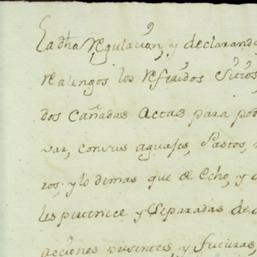 La dha regulacion, y declarando
realengos los referidos Sitios,
dos Cañadas Actas para pod
var, con sus aguajes, Pastos,
ros, y lo demas que de echo, y
les pertenece y Separadas de
acciones presentes y futuras,